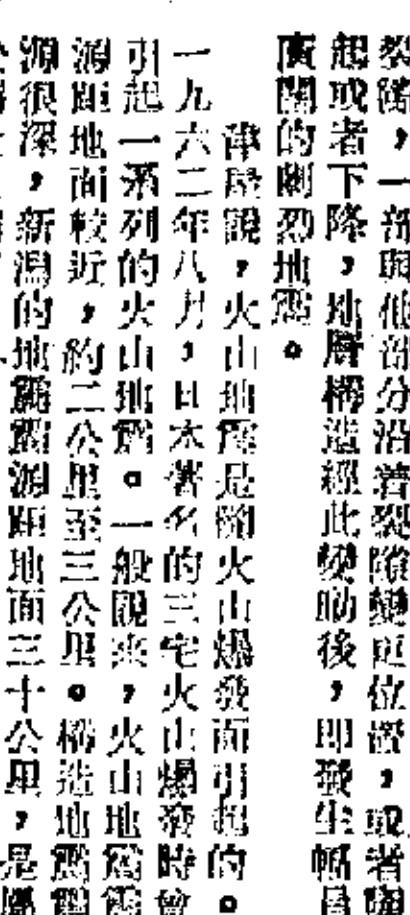 裂隙，一部與他部分沿着裂隙變更位置，或者
起或者下降，地層構造經此變動後，即發生幅
廣闊的劇烈地震。
火山地震是因火山爆發而引起的。
一九六二年八月，日本著名的三宅火山爆發時曾
引起一系列的火山地震。一般說來，火山地震震
源距地面較近，約二公里至三公里。構造地震
源很深，新潟的地震震源距地面三十公里，是